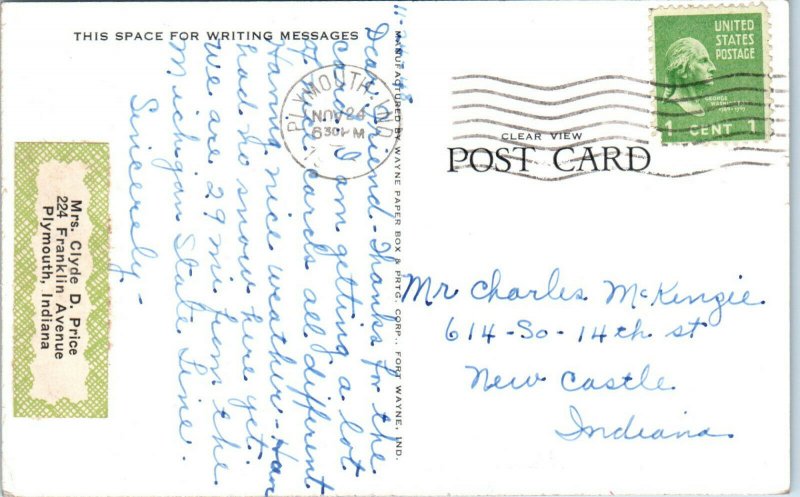 THIS SPACE FOR WRITING MESSAGES
11-24-
Dear Friend - Thanks for the
card. I am getting a lot
of nice cards all different
Having nice weather - Han
had no snow here yet.
we are 29 mi. from the
Michigan State Line.
Sincerely -
Mrs. Clyde D. Price
224 Franklin Avenue
Plymouth, Indiana
MANUFACTURED BY WAYNE PAPER BOX & PRTG. CORP., FORT WAYNE, IND.
PLYMOUTH, IND.
NOV 24
630 PM
UNITED
STATES
POSTAGE
GEORGE
WASHINGTON
1 CENT 1
CLEAR VIEW
POST CARD
Mr Charles McKenzie
614-So-14th st
New Castle
Indiana.